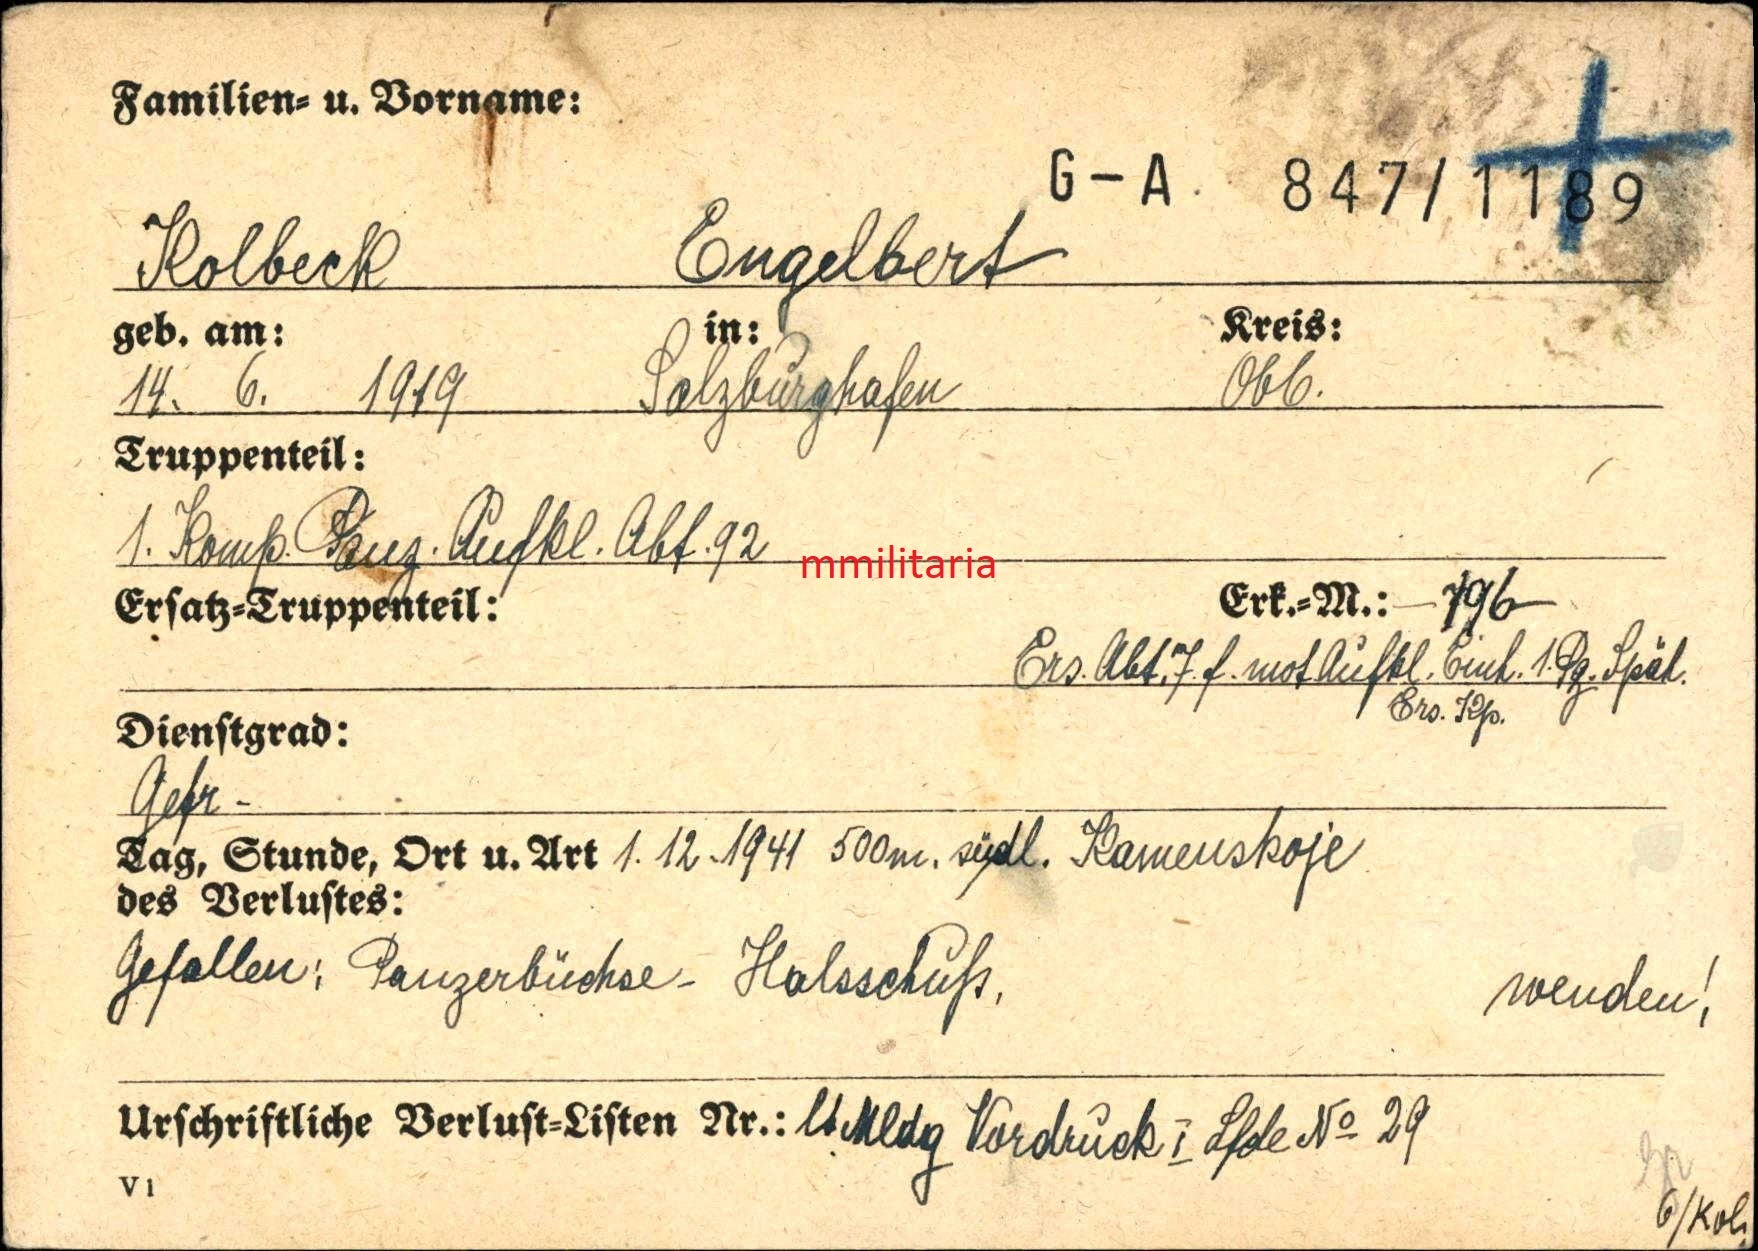 Familien- u. Vorname:
G-A 847/1189
Kolbeck Engelbert
geb. am: in: Kreis:
14. 6. 1919 Salzburghafen Obb.
Truppenteil:
1. Komp. Panz. Aufkl. Abt. 92
mmilitaria
Ersatz-Truppenteil: Erk.-M.: -796-
Ers. Abt. 7 f. mot Aufkl. Einh. 1. Pz. Späh.
Ers. Kp.
Dienstgrad:
Gefr-
Tag, Stunde, Ort u. Art 1. 12. 1941 500m. südl. Kamenskoje
des Verlustes:
Gefallen: Panzerbüchse- Halsschuß.
wenden!
Urschriftliche Verlust-Listen Nr.: lt Mldg Vordruck I Lfde No 29
V1
6/Kol.